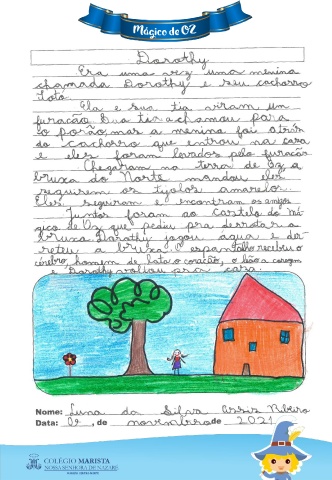 Mágico de OZ
Dorothy
Era uma vez uma menina
chamada Dorothy e seu cachorro
Totó.
Ela e sua tia viram um
furacão. Sua tia a chamou para
o porão, mas a menina foi atrás
do cachorro que entrou na casa
e eles foram levados pelo furacão.
Chegaram na terra de Oz, a
bruxa do Norte mandou eles
seguirem os tijolos amarelos.
Eles seguiram e encontram os amigos.
Juntos foram ao castelo do má-
gico de Oz que pediu pra derrotar a
bruxa. Dorothy jogou água e der-
reteu a bruxa. O espantalho recebeu o
cérebro, homem de lata o coração, o leão a coragem
e Dorothy voltou pra casa.
Nome: Luna da Silva Assis Ribeiro
Data: 09, de novembro de 2021
COLÉGIO MARISTA
NOSSA SENHORA DE NAZARÉ